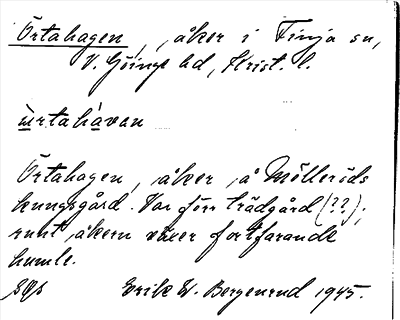 Örtahagen, åker i Finja sn,
V. Göinge hd, Krist. l.
ürtahávan
Örtahagen, åker å Mölleröds
kungsgård. Var förr trädgård (??);
runt åkern växer fortfarande
humle.
Erik W. Bergenrud 1945.